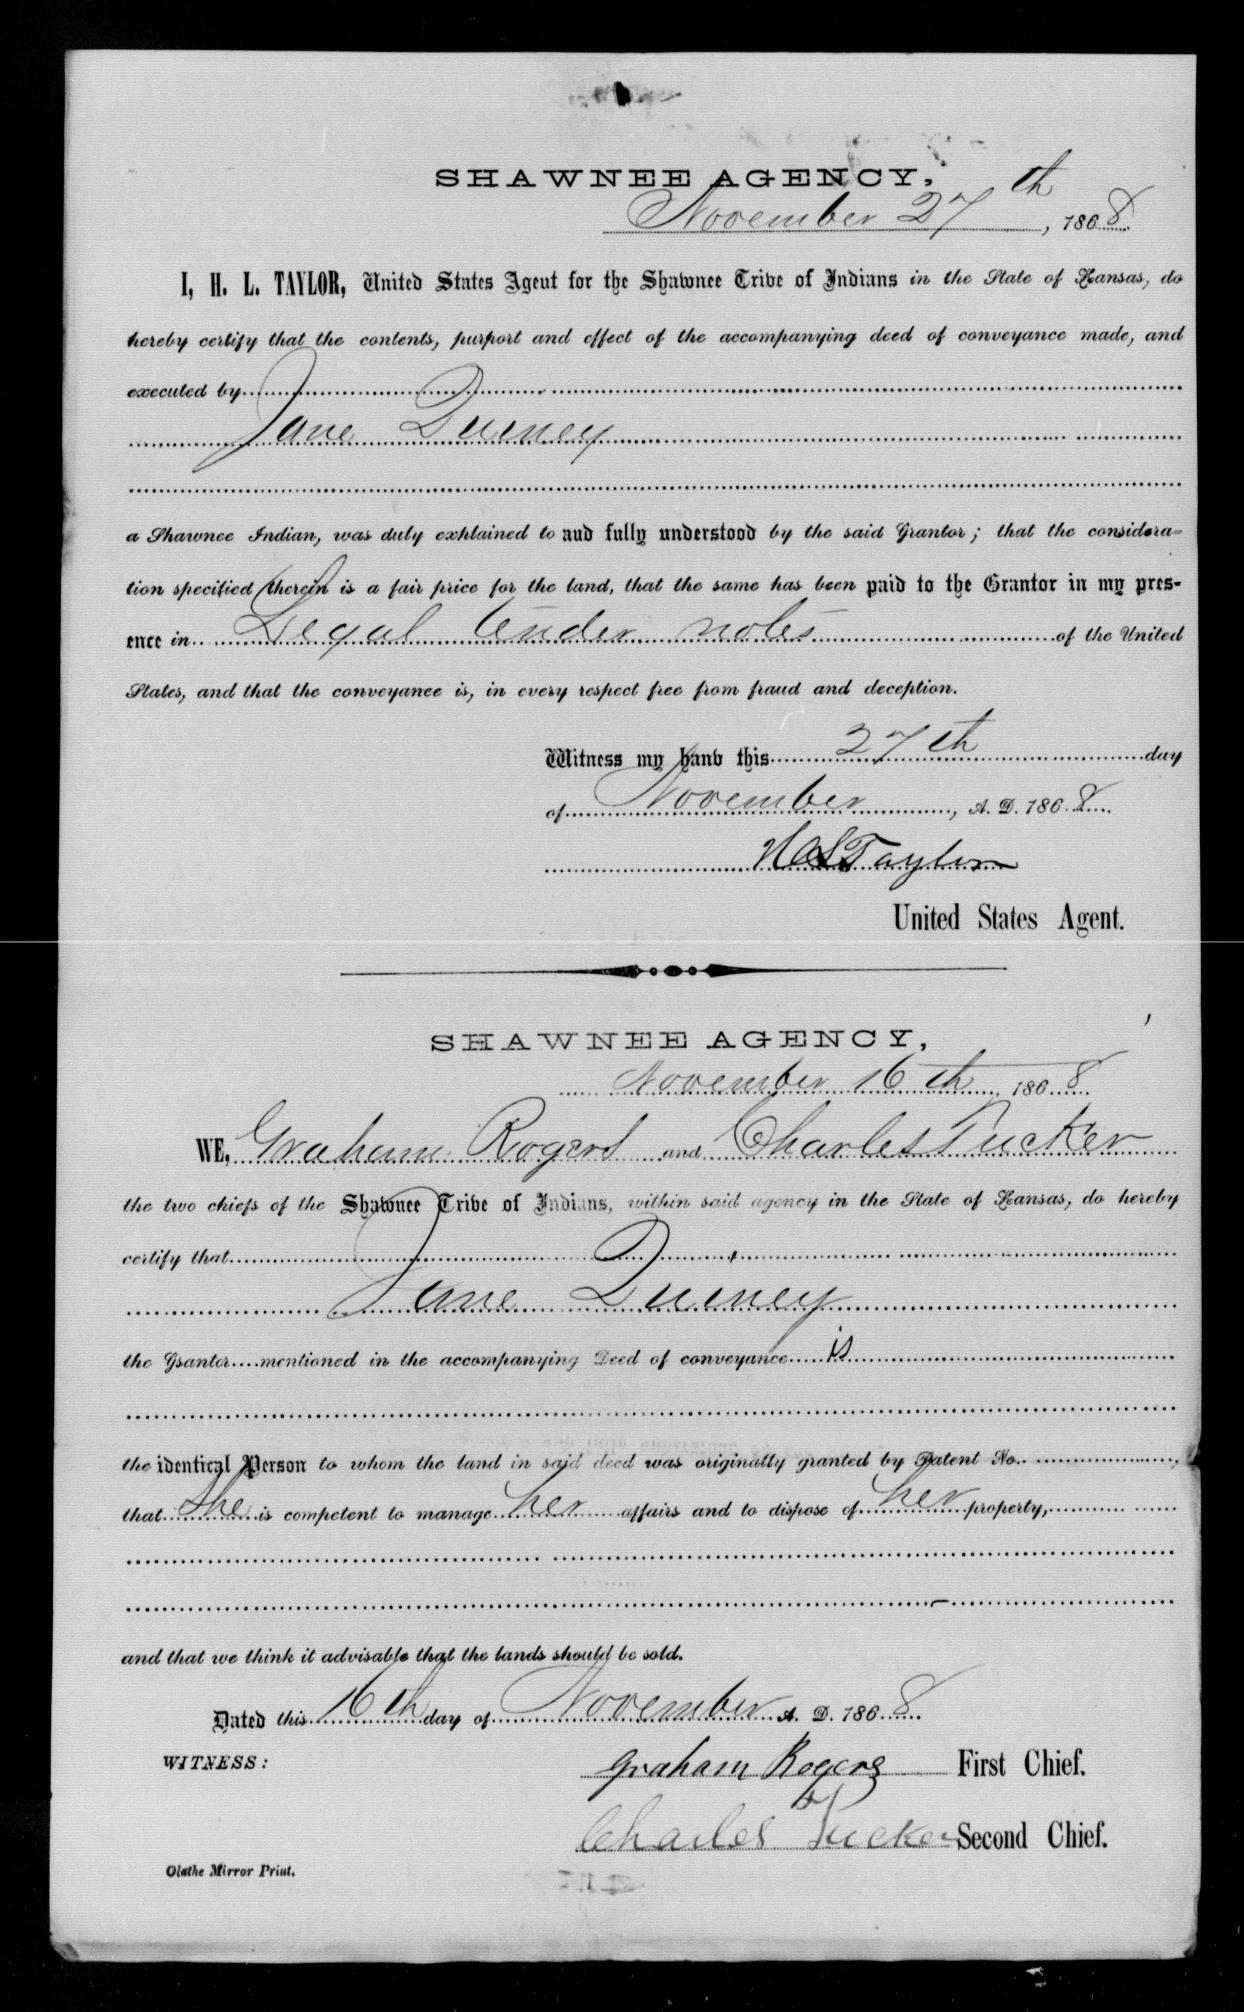 SHAWNEE AGENCY,
November 27th, 1868.
I, H. L. TAYLOR, United States Agent for the Shawnee Tribe of Indians in the State of Kansas, do
hereby certify that the contents, purport and effect of the accompanying deed of conveyance made, and
executed by
Jane Queney
a Shawnee Indian, was duly explained to and fully understood by the said Grantor; that the considera-
tion specified therein is a fair price for the land, that the same has been paid to the Grantor in my pres-
ence in Legal tender notes of the United
States, and that the conveyance is, in every respect free from fraud and deception.
Witness my hand this 27th day
of November, A. D. 1868
H L Taylor
United States Agent.
SHAWNEE AGENCY,
November 16th, 1868
WE, Graham Rogers and Charles Tucker
the two chiefs of the Shawnee Tribe of Indians, within said agency in the State of Kansas, do hereby
certify that
Jane Queney
the Grantor mentioned in the accompanying Deed of conveyance is
the identical Person to whom the land in said deed was originally granted by Patent No.
that She is competent to manage her affairs and to dispose of her property,
and that we think it advisable that the lands should be sold.
Dated this 16th day of November A. D. 1868
WITNESS:
Graham Rogers First Chief.
Charles Tucker Second Chief.
Olathe Mirror Print.